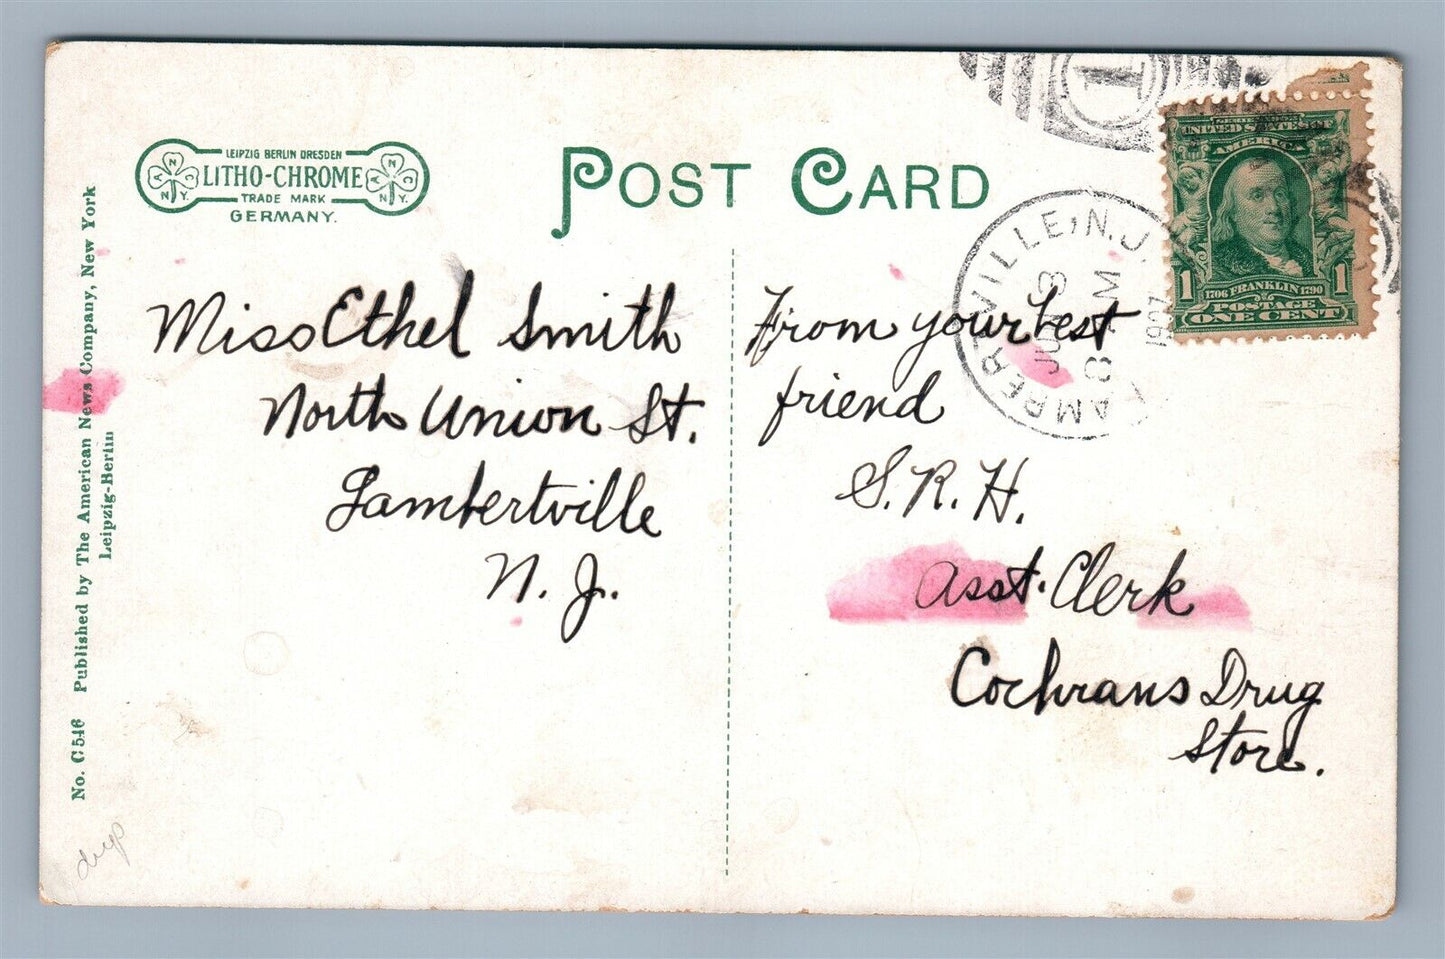 LEIPZIG BERLIN DRESDEN
LITHO-CHROME
TRADE MARK
GERMANY.
POST CARD
1
UNITED STATES OF
AMERICA
1 1
1706 FRANKLIN 1790
POSTAGE
ONE CENT
LAMBERTVILLE, N.J.
JUN 3
8
M
1907
Miss Ethel Smith
North Union St.
Lambertville
N. J.
From your best
friend
S. R. H.
Asst. Clerk
Cochrans Drug
Store.
No. C 546 Published by The American News Company, New York
Leipzig-Berlin